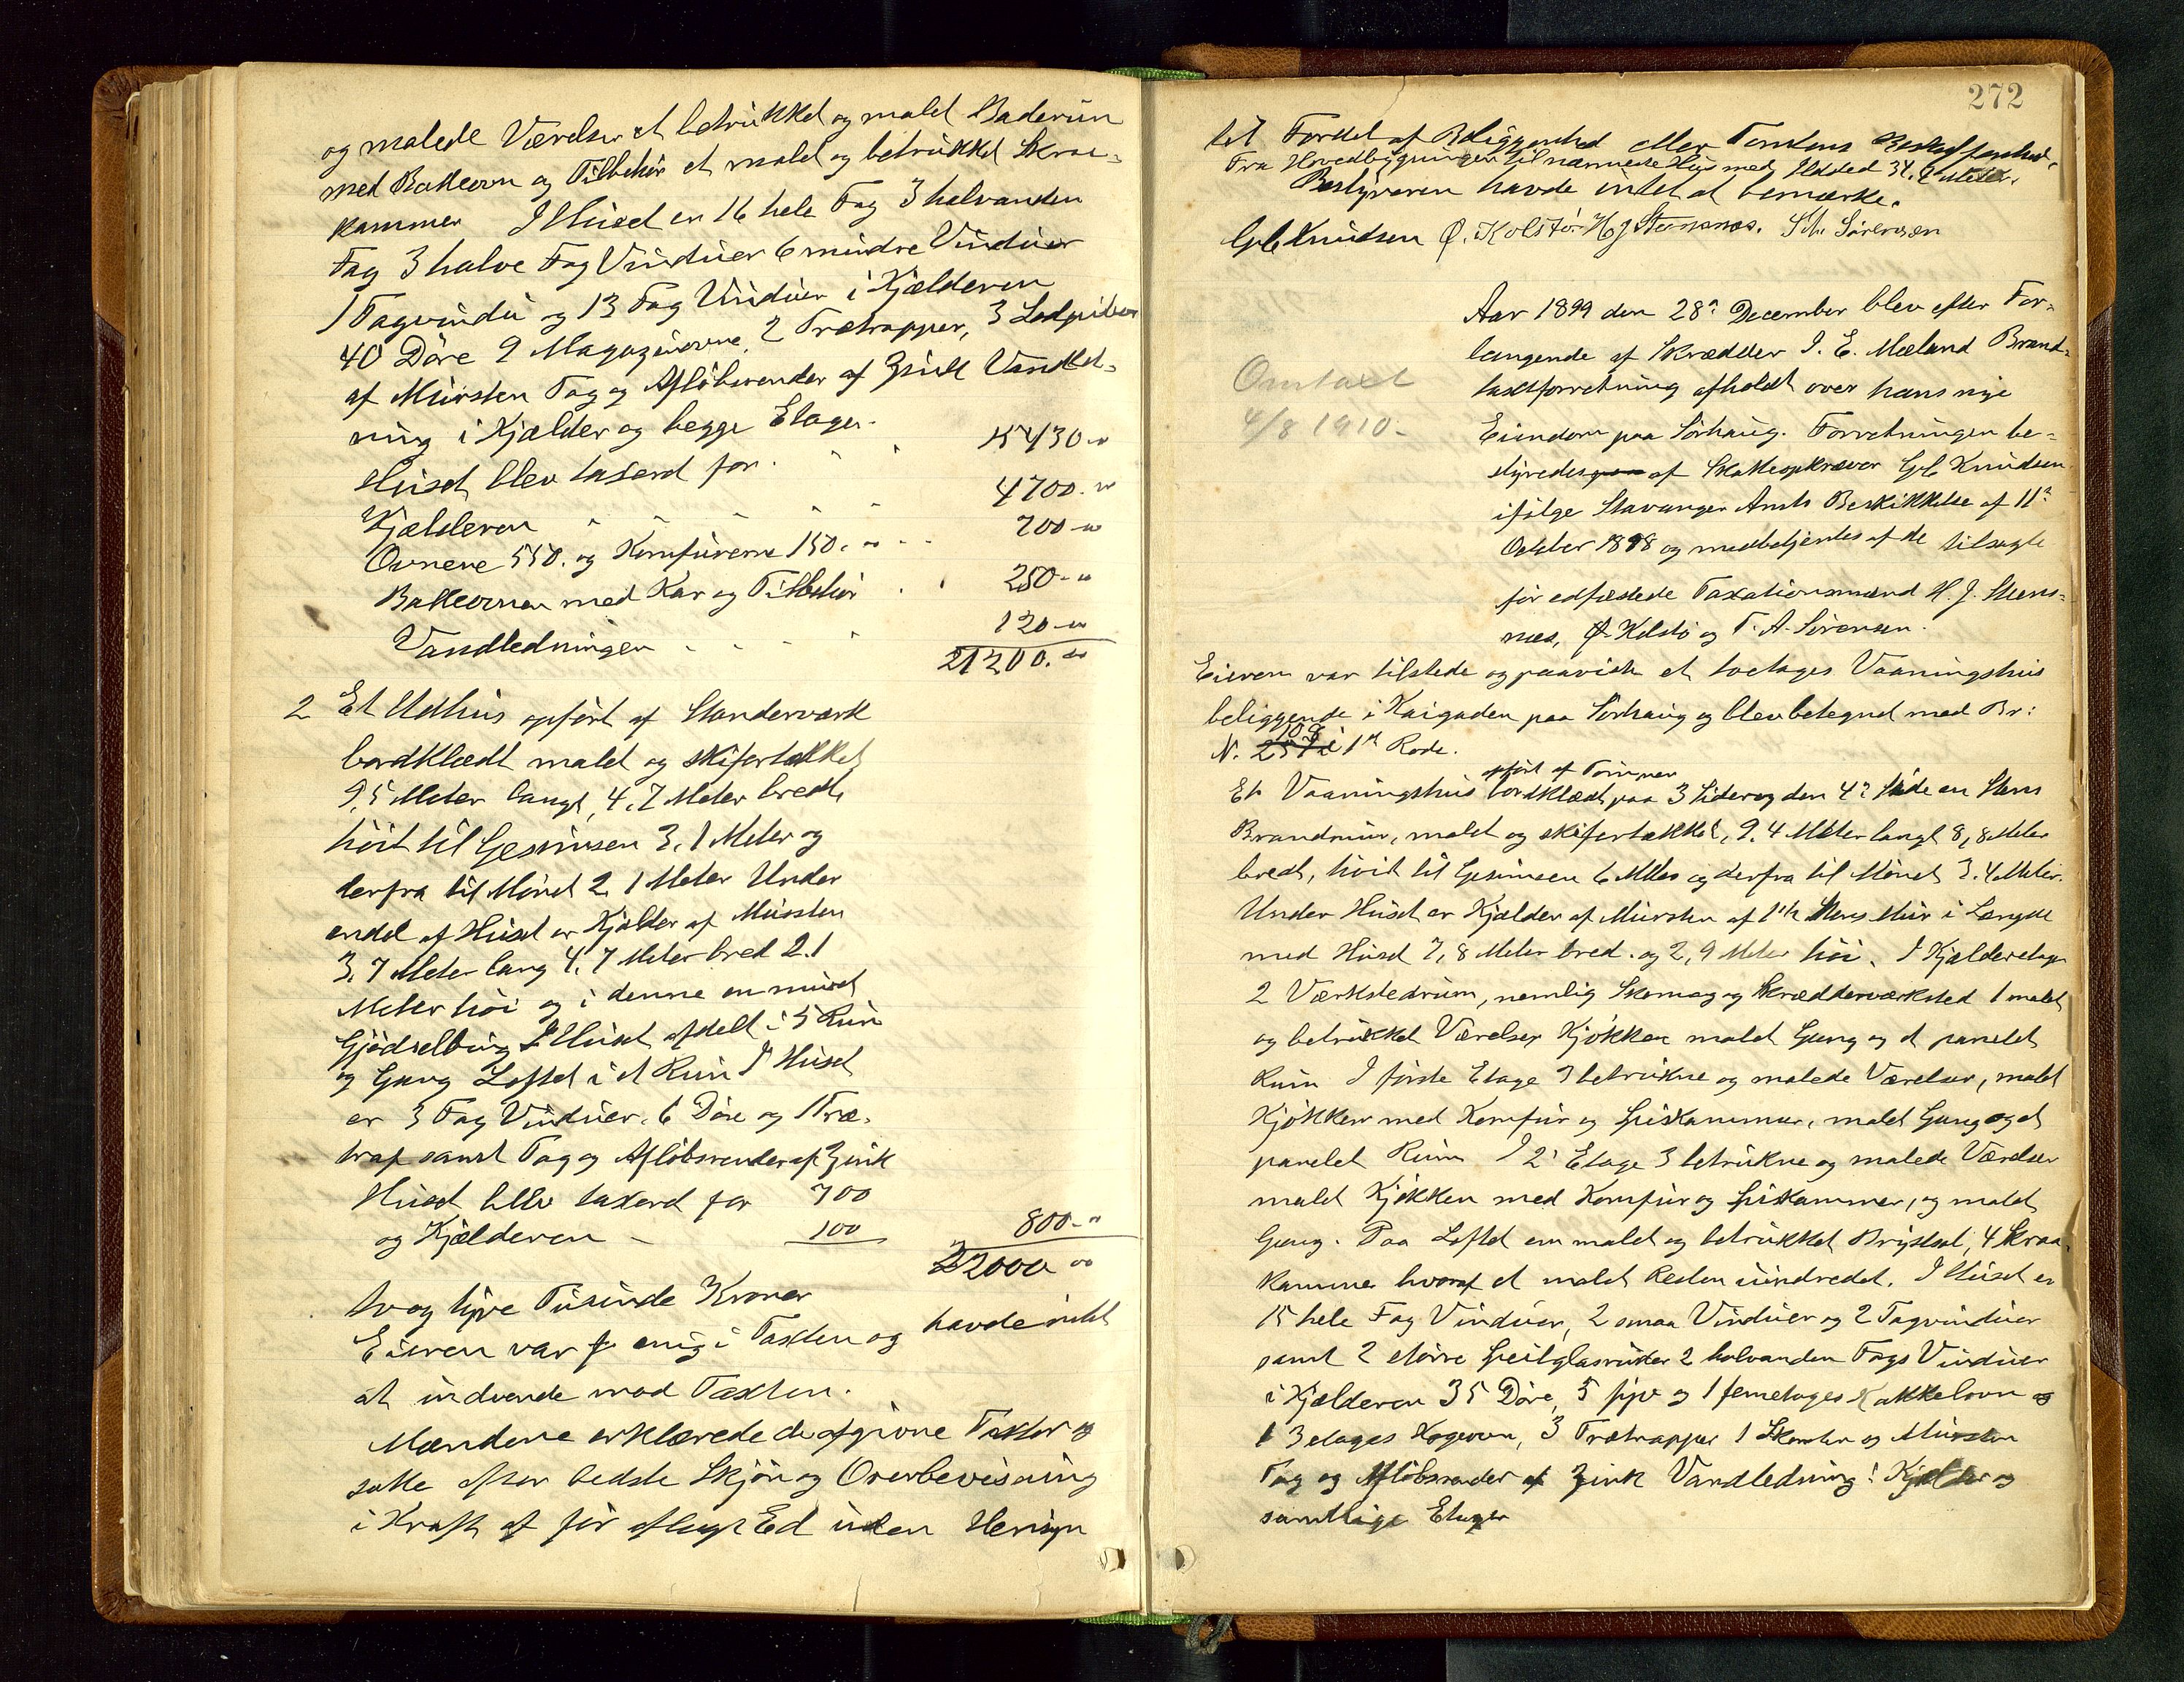 og malede Værelser et betrukket og malet Baderum
med Bakkeovn og Tilbehør et malet og betrukket Skraa-
kammer I Huset er 16 hele Fag 3 halvanden
Fag 3 halve Fag Vinduer 6 mindre Vinduer
1 Tagvindu og 13 Fag Vinduer i Kjælderen
40 Døre 9 Magazinovne, 2 Trætrapper, 3 Lodpiber
af Mursten Tag og Afløbsrender af Zink Vandled-
ning i Kjælder og begge Etager.
Huset blev taxeret for 15430 -"
Kjælderen " " " " 4700. "
Ovnene 550. og Komfurerne 150. " 700 - "
Bakkeovnen med Kar og Tilbehør 250 - "
Vandledningen 120 - "
21200. "
2 Et Udhus opført af Standerværk
bordklædt malet og skifertækket
9,5 Meter langt, 4,7 Meter bredt,
høit til Gesimsen 3,1 Meter og
derfra til Mønet 2,1 Meter Under
endel af Huset er Kjælder af Mursten
3,7 Meter lang 4,7 Meter bred 2.1
Meter høi og i denne en muret
Gjødselbing I Huset afdelt i 5 Rum
og Gang Loftet i et Rum I Huset
er 3 Fag Vinduer, 6 Døre og 1 Træ-
trap samt Tag og Afløbsrender af Zink
Huset blev taxeret for 700
og Kjælderen - 100 800 - "
22000 00
to og tyve Tusinde Kroner
Eieren var enig i Taxten og havde intet
at indvende mod Taxten.
Mændene erklærede de afgivne Taxter
satte efter bedste Skjøn og Overbevisning
i Kraft af før aflagt Ed uden Hensyn
272
til Fordel af Beliggenhed eller Tomtens Beskaffenhed.
Fra Hovedbygningen til nærmeste Hus med Ildsted 34,2 Meter.
Bestyreren havde intet at bemærke.
Knudsen Ø. Kolstø H J Stensnæs. Sørensen
Omtaxt
4/8 1910-
Aar 1899 den 28de December blev efter For-
langende af Skrædder I. E. Mæland Brand-
taxtforretning afholdt over hans nye
Eiendom paa Sørhaug. Forretningen be-
styredes af Skatteopkræver Knudsen
ifølge Stavanger Amts Beskikkelse af 11te
October 1898 og medbetjentes af de tilsagte
før edfæstede Taxationsmænd H. J. Stens-
næs, Ø. Kolstø og T. A. Sørensen.
Eieren var tilstede og paaviste et toetages Vaaningshus
beliggende i Kaigaden paa Sørhaug og blev betegnet med Br:
108
N. 257 i 1ste Rode.
opført af Tømmer
Et Vaaningshus bordklædt paa 3 Sider og den 4de Side en Stens
Brandmur, malet og skifertækket, 9,4 Meter langt 8,8 Meter
bredt, høit til Gesimsen 6 Meter og derfra til Mønet 3.4 Meter.
Under Huset er Kjælder af Mursten af 1 1/2 Stens Mur i Længde
med Huset 7,8 Meter bred. og 2,9 Meter høi. I Kjælderetagen
2 Værkstedrum, nemlig Skomag og Skrædderværksted 1 malet
og betrukket Værelse Kjøkken malet Gang og et panelet
Rum I første Etage 3 betrukne og malede Værelser, malet
Kjøkken med Komfur og Spiskammer, malet Gang og et
panelet Rum I 2den Etage 3 betrukne og malede Værelser
malet Kjøkken med Komfur og Spiskammer, og malet
Gang. Paa Loftet en malet og betrukket Brystsal, 4 Skraa-
kammer hvoraf et malet Resten uindredet. I Huset er
15 hele Fag Vinduer, 2 smaa Vinduer og 2 Tagvinduer
samt 2 større Speilglasruder 2 halvanden Fags Vinduer
i Kjælderen 35 Døre, 5 og 1 femetages Kakkelovn og
1 3 etages Kogeovn, 3 Trætrapper 1 Skorsten og Mursten
Tag og Afløbsrender af Zink Vandledning i Kjælder og
samtlige Etager